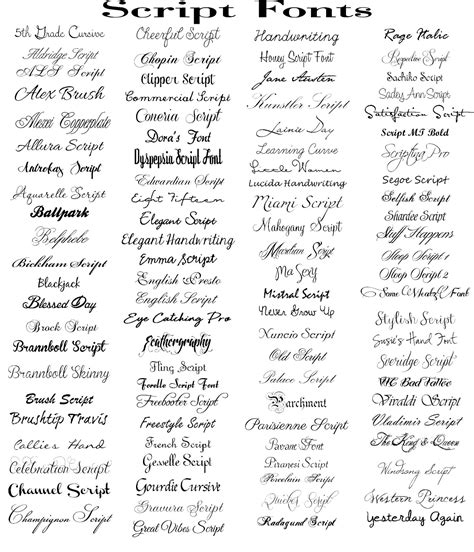 Script Fonts
5th Grade Cursive
Aldridge Script
ALS Script
Alex Brush
Alexei Copperplate
Allura Script
Antrokas Script
Aquarelle Script
Ballpark
Belphebe
Bickham Script
Blackjack
Blessed Day
Brock Script
Brannboll Script
Brannboll Skinny
Brush Script
Brushtip Travis
Callie's Hand
Celebration Script
Channel Script
Champignon Script
Cheerful Script
Chopin Script
Clipper Script
Commercial Script
Coneria Script
Dora's Font
Dyspepsia Script Font
Edwardian Script
Eight Fifteen
Elegant Script
Elegant Handwriting
Emma Script
English Presto
English Script
Eye Catching Pro
Feathergraphy
Fling Script
Foredle Script Font
Freebooter Script
Freestyle Script
French Script
Geselle Script
Gourdie Cursive
Gravura Script
Great Vibes Script
Handwriting
Honey Script Font
Jane Austen
Kunstler Script
Lainie Day
Learning Curve
Little Women
Lucida Handwriting
Miami Script
Mahogany Script
Script
Ma Sexy
Mistral Script
Never Grow Up
Nuncio Script
Old Script
Palace Script
Parchment
Parisienne Script
Pavane Font
Piranesi Script
Porcelain Script
Quickier Script
Radagund Script
Rage Italic
Script
Sachiko Script
Sadey Ann Script
Satisfaction Script
Script MS Bold
Scriptina Pro
Segoe Script
Selfish Script
Shardee Script
Stuff Happens
Sleep Script 1
Sleep Script 2
Some Font
Stylish Script
Susie's Hand Font
Sveridge Script
MC Bad Tattoo
Vivaldi Script
Vladimir Script
The King & Queen
Windsong Script
Western Princess
Yesterday Again